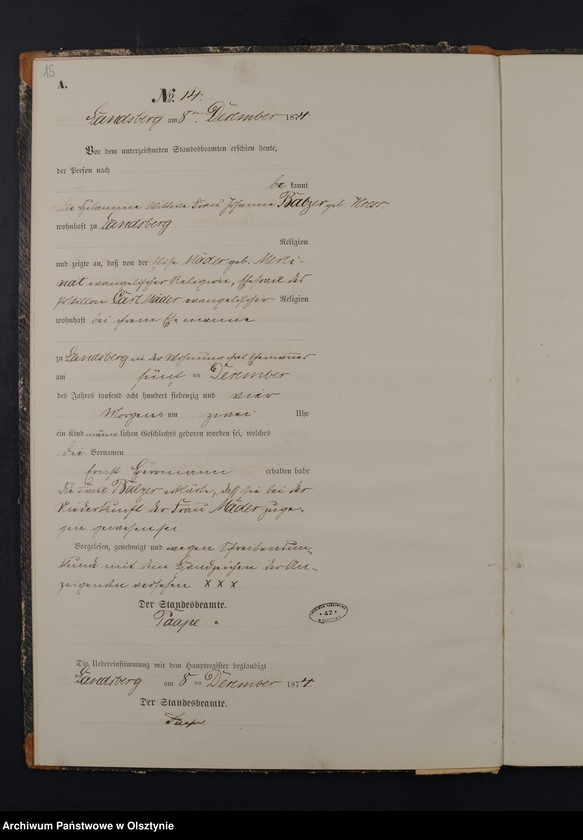 15
A.
No. 14.
Landsberg am 8ten Dezember 1874
Vor dem unterzeichneten Standesbeamten erschien heute,
der Person nach
be kannt
die Hebamme Wittwe Frau Johanna Bälzer geb.
wohnhaft zu Landsberg
Religion
und zeigte an, daß von der Mäder geb. Merti-
nat evangelischer Religion, Ehefrau des
Postillon Carl Mäder evangelischer Religion
wohnhaft bei ihrem Ehemanne
zu Landsberg in der Wohnung des Ehemannes
am fünften Dezember
des Jahres tausend acht hundert siebenzig und vier
Morgens um zwei Uhr
ein Kind männlichen Geschlechts geboren worden sei, welches
die Vornamen
Ernst Herrmann erhalten habe
Die Frau Bälzer erklärte, daß sie bei der
Niederkunft der Frau Mäder zuge-
gen gewesen sei
Vorgelesen, genehmigt und wegen Schreibensun-
kunde mit dem Handzeichen der An-
zeigenden versehen X X X
Der Standesbeamte.
Paape
* 42 *
Die Uebereinstimmung mit dem Hauptregister beglaubigt
Landsberg am 8ten Dezember 1874
Der Standesbeamte.
Paape
Archiwum Państwowe w Olsztynie